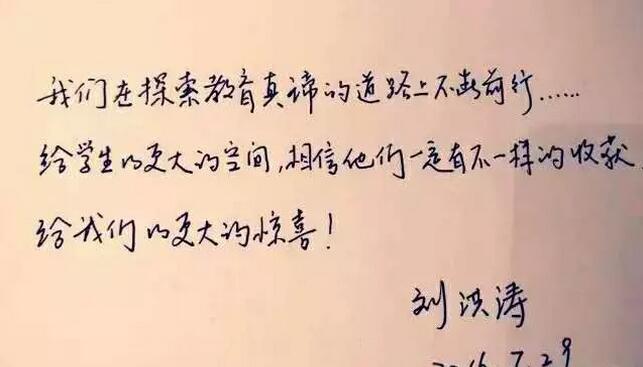 我们在探索教育真谛的道路上不断前行……
给学生的更大的空间,相信他们一定有不一样的收获,
给我们的更大的惊喜!
刘洪涛
2016.7.29